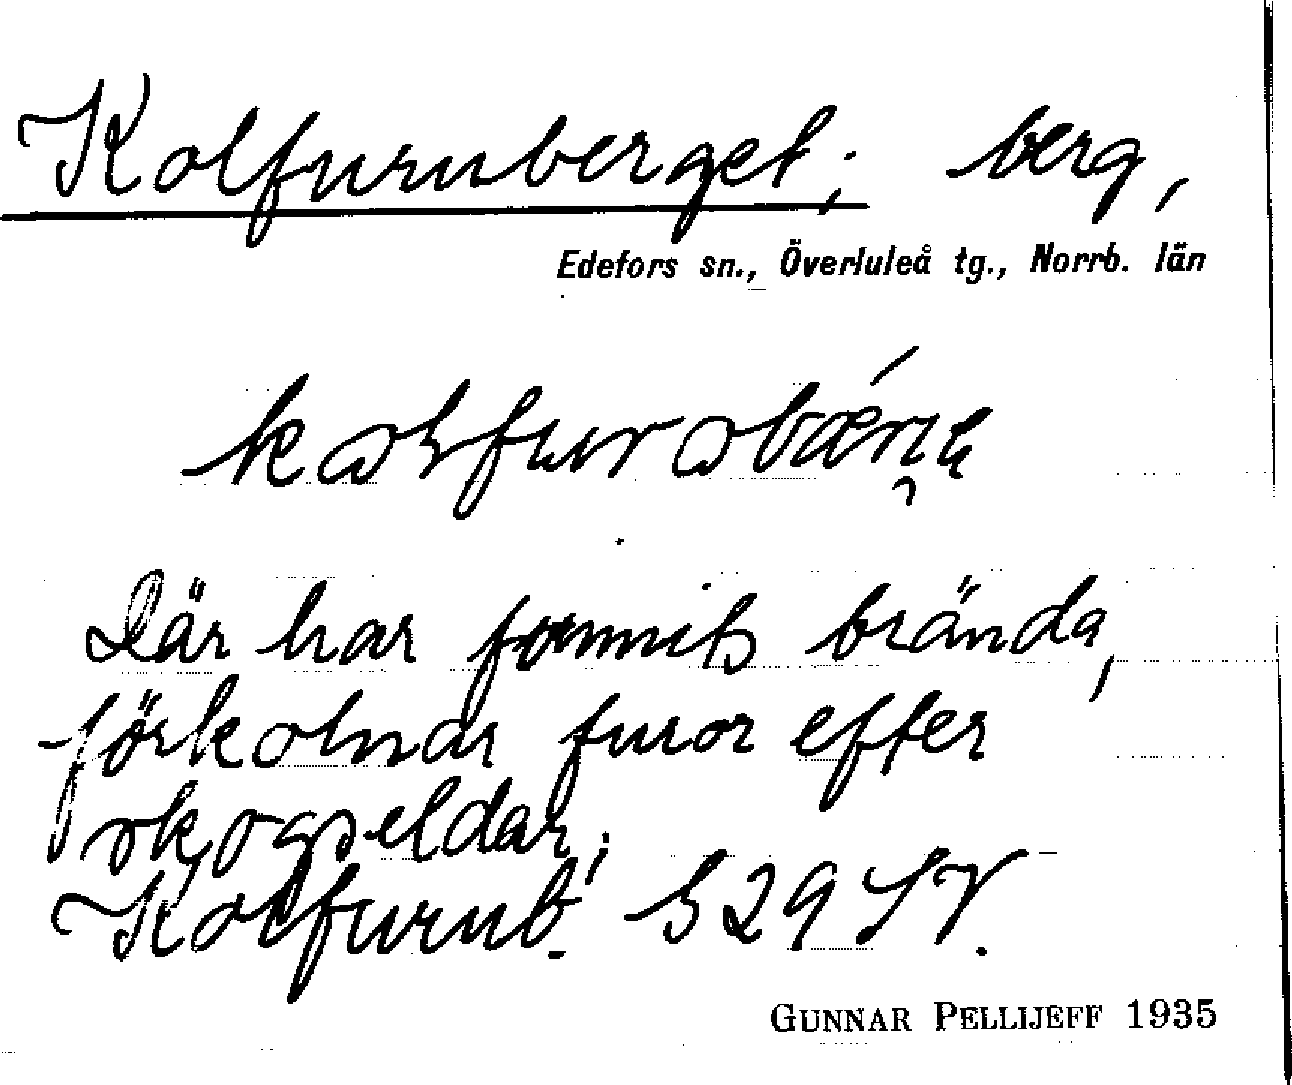 Kolfuruberget; berg,
Edefors sn., Överluleå tg., Norrb. län
Där har funnits brända,
förkolnar furor efter
skogseldar;
Kolfurub. S29 SV.
GUNNAR PELLIJEFF 1935